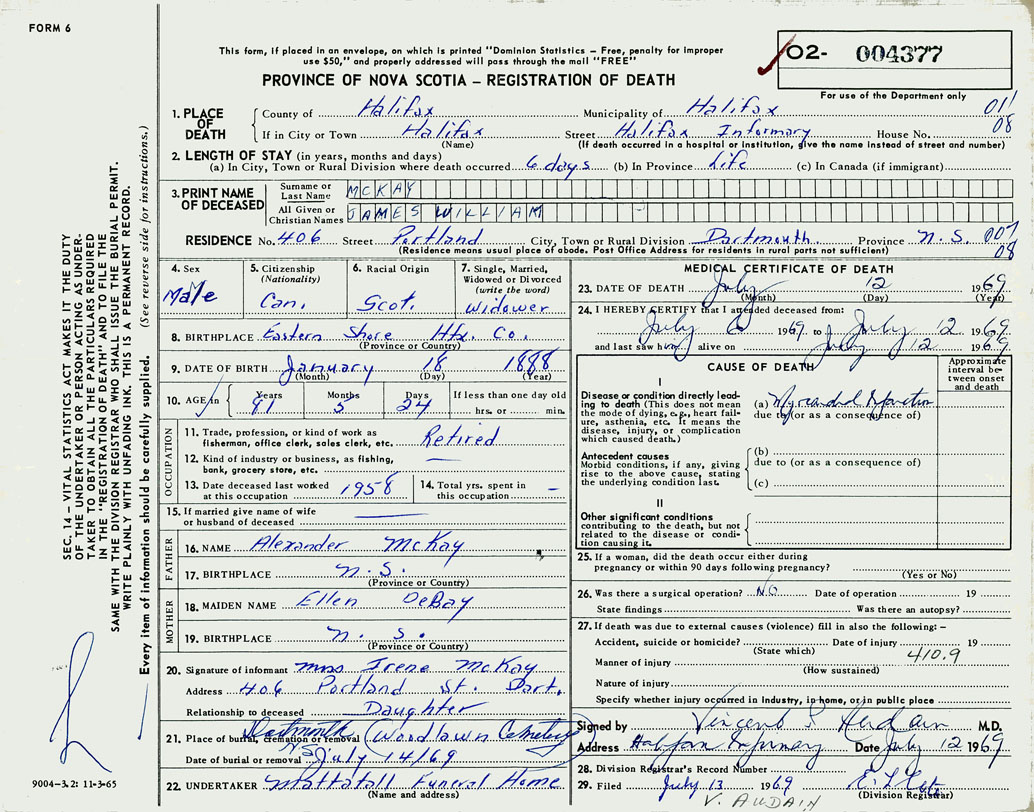 FORM 6
This form, if placed in an envelope, on which is printed "Dominion Statistics – Free, penalty for improper
use $50," and properly addressed will pass through the mail "FREE"
PROVINCE OF NOVA SCOTIA – REGISTRATION OF DEATH
02- 004377
For use of the Department only
1. PLACE OF DEATH
County of Halifax Municipality of Halifax 011
If in City or Town Halifax Street Halifax Infirmary House No. 08
(Name) (If death occurred in a hospital or institution, give the name instead of street and number)
2. LENGTH OF STAY (in years, months and days)
(a) In City, Town or Rural Division where death occurred 6 days (b) In Province Life (c) In Canada (if immigrant)
3. PRINT NAME OF DECEASED
Surname or Last Name MCKAY
All Given or Christian Names JAMES WILLIAM
RESIDENCE No. 406 Street Portland City, Town or Rural Division Dartmouth Province N.S. 007
(Residence means usual place of abode. Post Office Address for residents in rural parts not sufficient) 08
4. Sex Male
5. Citizenship (Nationality) Can.
6. Racial Origin Scot.
7. Single, Married, Widowed or Divorced (write the word) Widower
8. BIRTHPLACE Eastern Shore Hfx. Co.
(Province or Country)
9. DATE OF BIRTH January 18 1888
(Month) (Day) (Year)
10. AGE in Years 81 Months 5 Days 24 If less than one day old hrs. or min.
OCCUPATION
11. Trade, profession, or kind of work as fisherman, office clerk, sales clerk, etc. Retired
12. Kind of industry or business, as fishing, bank, grocery store, etc. —
13. Date deceased last worked at this occupation 1958
14. Total yrs. spent in this occupation –
15. If married give name of wife or husband of deceased —
FATHER
16. NAME Alexander McKay
17. BIRTHPLACE N.S.
(Province or Country)
MOTHER
18. MAIDEN NAME Ellen DeBay
19. BIRTHPLACE N.S.
(Province or Country)
20. Signature of informant Mrs Irene McKay
Address 406 Portland St. Dart.
Relationship to deceased Daughter
21. Place of burial, cremation or removal Dartmouth N.S. (Woodlawn Cemetery)
Date of burial or removal July 14/69
22. UNDERTAKER Mattatall Funeral Home
(Name and address)
MEDICAL CERTIFICATE OF DEATH
23. DATE OF DEATH July 12 1969
(Month) (Day) (Year)
24. I HEREBY CERTIFY that I attended deceased from:
July 6 1969 to July 12 1969
and last saw him alive on July 12 1969
CAUSE OF DEATH
Approximate interval between onset and death
I
Disease or condition directly leading to death (This does not mean the mode of dying, e.g., heart failure, asthenia, etc. It means the disease, injury, or complication which caused death.)
(a) Myocardial Infarction
due to (or as a consequence of)
Antecedent causes
Morbid conditions, if any, giving rise to the above cause, stating the underlying condition last.
(b)
due to (or as a consequence of)
(c)
II
Other significant conditions contributing to the death, but not related to the disease or condition causing it.
25. If a woman, did the death occur either during
pregnancy or within 90 days following pregnancy?
(Yes or No)
26. Was there a surgical operation? NO Date of operation 19
State findings Was there an autopsy?
27. If death was due to external causes (violence) fill in also the following: –
Accident, suicide or homicide? Date of injury 19
(State which) 410.9
Manner of injury
(How sustained)
Nature of injury
Specify whether injury occurred in Industry, in home, or in public place
Signed by Vincent Audain M.D.
Address Halifax Infirmary Date July 12 1969
28. Division Registrar's Record Number
29. Filed July 13 1969
(Division Registrar)
V. AUDAIN
SEC. 14 – VITAL STATISTICS ACT MAKES IT THE DUTY
OF THE UNDERTAKER OR PERSON ACTING AS UNDER-
TAKER TO OBTAIN ALL THE PARTICULARS REQUIRED
IN THE "REGISTRATION OF DEATH" AND TO FILE THE
SAME WITH THE DIVISION REGISTRAR WHO SHALL ISSUE THE BURIAL PERMIT.
WRITE PLAINLY WITH UNFADING INK. THIS IS A PERMANENT RECORD.
Every item of information should be carefully supplied. (See reverse side for instructions.)
9004-3.2: 11-3-65